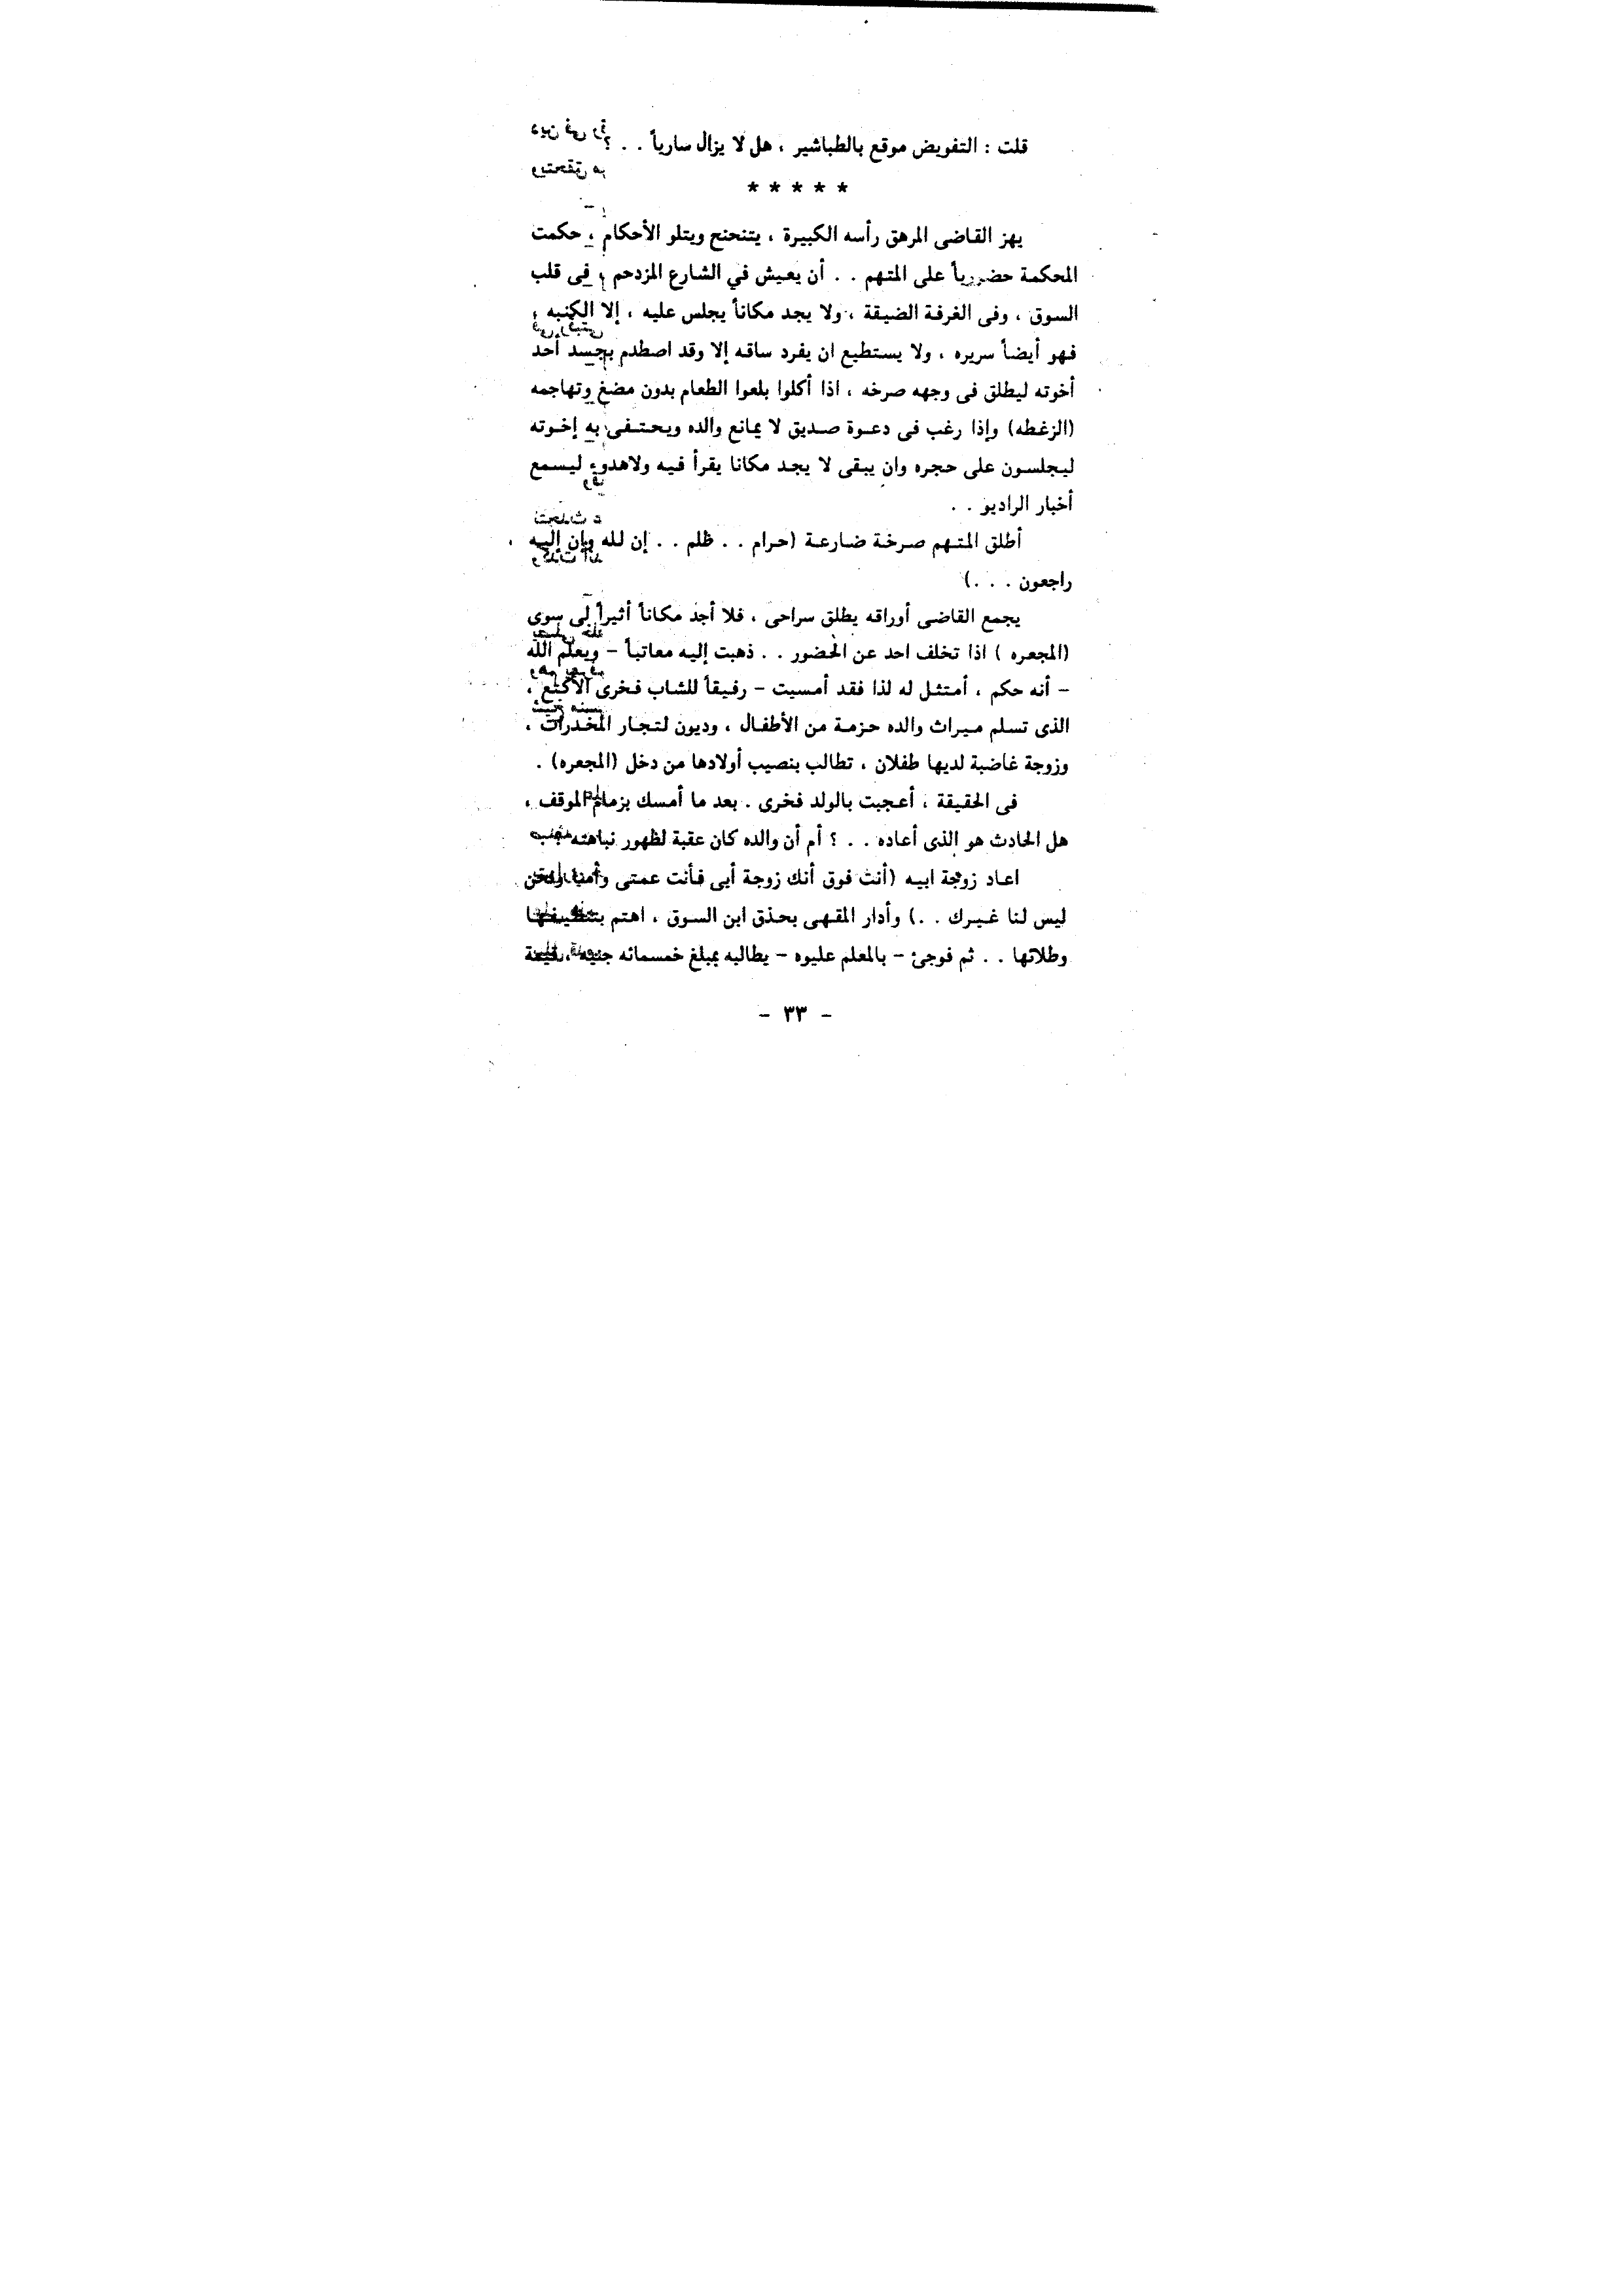 قلت : التفويض موقع بالطباشير ، هل لا يزال سارياً . . ؟
* * * * *
يهز القاضى المرهق رأسه الكبيرة ، يتنحنح ويتلو الأحكام ، حكمت
المحكمة حضورياً على المتهم . . أن يعيش في الشارع المزدحم ، فى قلب
السوق ، وفى الغرفة الضيقة ، ولا يجد مكاناً يجلس عليه ، إلا الكنبه ،
فهو أيضاً سريره ، ولا يستطيع ان يفرد ساقه إلا وقد اصطدم بجسد أحد
أخوته ليطلق فى وجهه صرخه ، اذا أكلوا بلعوا الطعام بدون مضغ وتهاجمه
(الزغطه) وإذا رغب فى دعوة صديق لا يمانع والده ويحتفى به إخوته
ليجلسون على حجره وان يبقى لا يجد مكانا يقرأ فيه ولاهدوء ليسمع
أخبار الراديو . .
أطلق المتهم صرخة ضارعة (حرام . . ظلم . . إن لله وإن إليه
راجعون . . .)
يجمع القاضى أوراقه يطلق سراحى ، فلا أجد مكاناً أثيراً لى سوى
(المجعره ) اذا تخلف احد عن الحضور . . ذهبت إليه معاتباً - ويعلم الله
- أنه حكم ، أمتثل له لذا فقد أمسيت - رفيقاً للشاب فخرى الأكتع ،
الذى تسلم ميراث والده حزمة من الأطفال ، وديون لتجار المخدرات ،
وزوجة غاضبة لديها طفلان ، تطالب بنصيب أولادها من دخل (المجعره) .
فى الحقيقة ، أعجبت بالولد فخرى . بعد ما أمسك بزمام الموقف ،
هل الحادث هو الذى أعاده . . ؟ أم أن والده كان عقبة لظهور نباهته
اعاد زوجة ابيه (أنت فوق أنك زوجة أبى فأنت عمتى وأمنا ونحن
ليس لنا غيرك . .) وأدار المقهى بحذق ابن السوق ، اهتم بتنظيفها
وطلائها . . ثم فوجئ - بالمعلم عليوه - يطالبه بمبلغ خمسمائه جنيه ، قيمة
- ٣٣ -